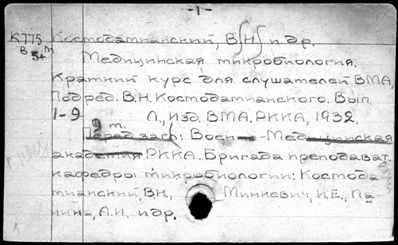 -1-
К775 Костодатианский, В.Н. и др.
В 54 т
Медицинская микробиология.
Краткий курс для слушателей ВМА.
Под ред. В.Н. Костодатианского. Вып.
1-9 Л., Изд. ВМА. РККА, 1932.
9 т.
Перед загл: Воен - Медицинская
академия РККА. Бригада преподават.
кафедры микробиологии: Костода
тианский, В.Н, Минкевич, И.Е., Па-
нина, А.И, и др.